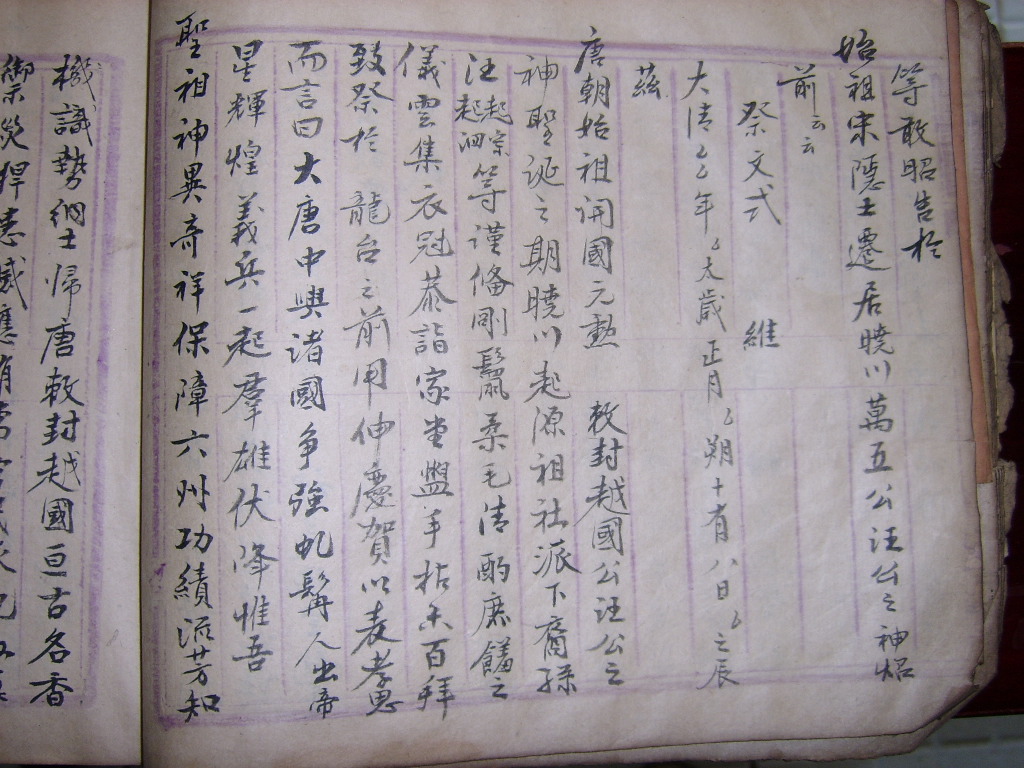 等敢昭告於
始祖宋隱士遷居曉川萬五公汪公之神
前云云
祭文式　維
大清　年　太歲正月　朔十有八日　之辰
茲
唐朝始祖開國元勳　敕封越國公汪公之
神聖誕之期曉川起源祖社派下裔孫
汪起宗起泗等謹俻剛鬣柔毛清酌庶饈之
儀雲集衣冠恭詣家堂盥手拈香百拜
致祭於　龍台之前用伸慶賀以表孝思
而言曰大唐中興諸國爭強虬髯人出帝
星輝煌義兵一起羣雄伏降惟吾
聖祖神異奇祥保障六州功績流芳知
機識勢納土帰唐敕封越國亘古名香
禦災捍患感應